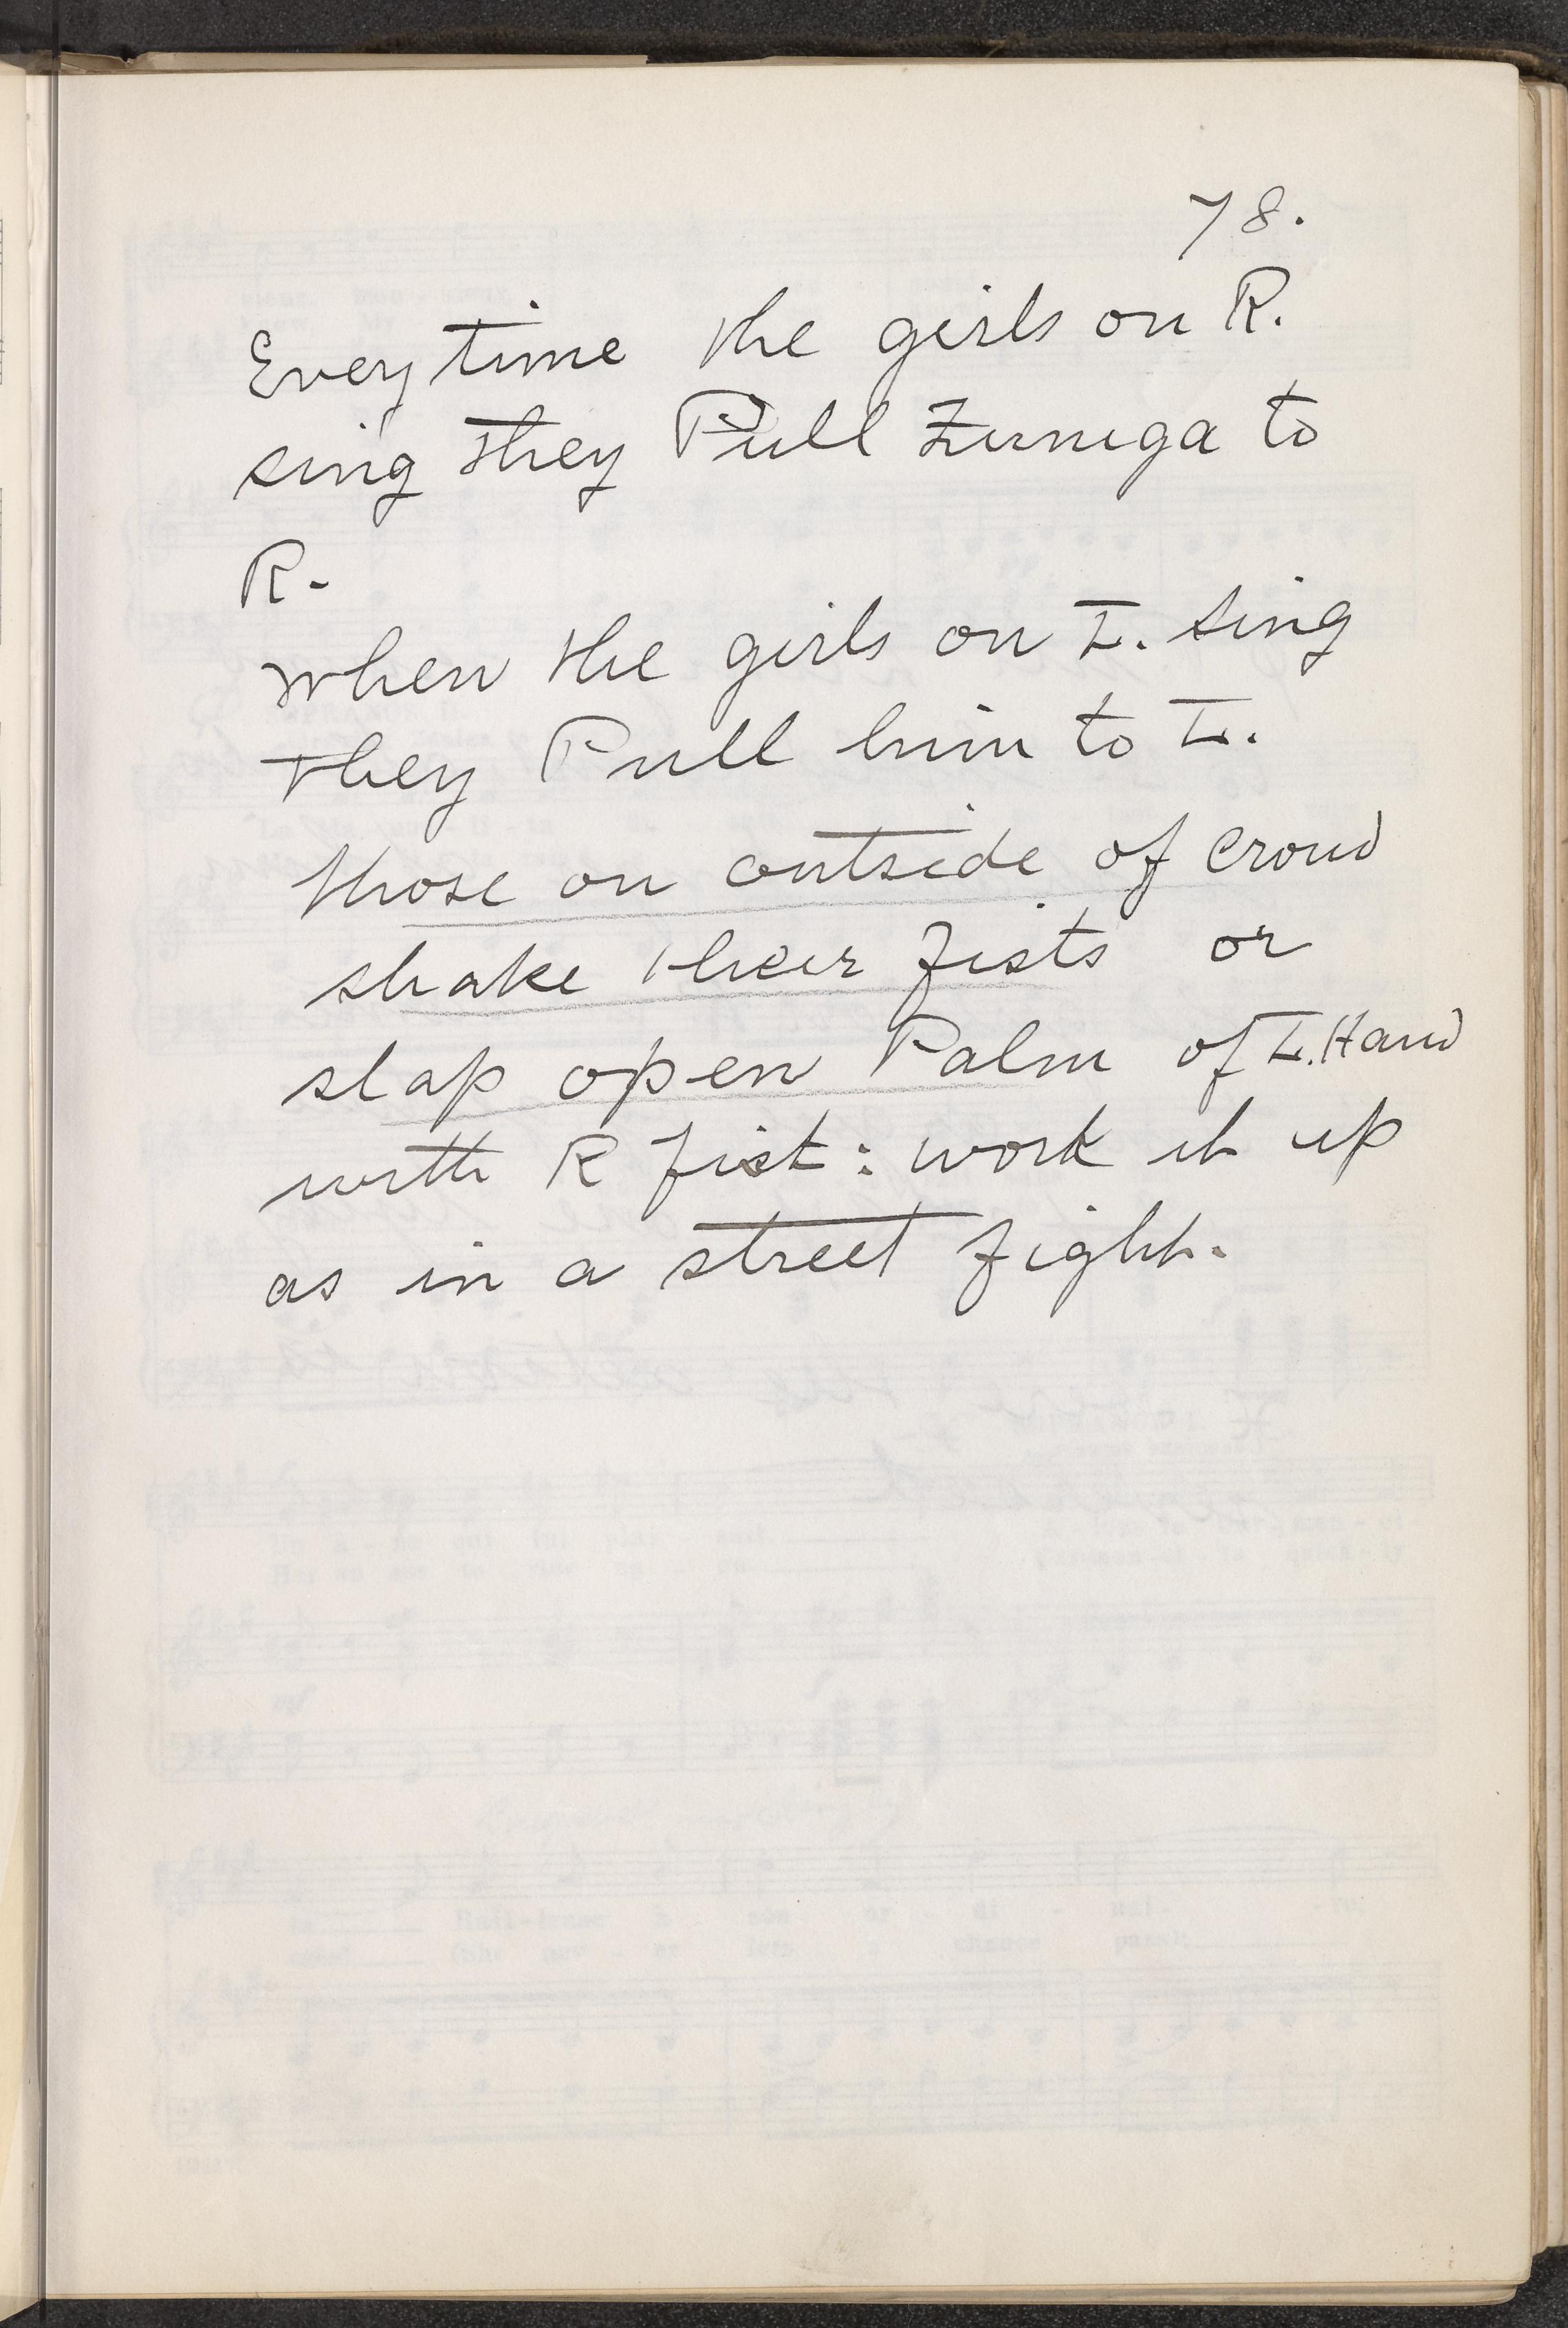 78.
Every time the girls on R.
sing they Pull Zuniga to
R.
When the girls on L. sing
they Pull him to L.
those on outside of Crowd
shake their fists or
slap open Palm of L. Hand
with R fist: work it up
as in a street fight.